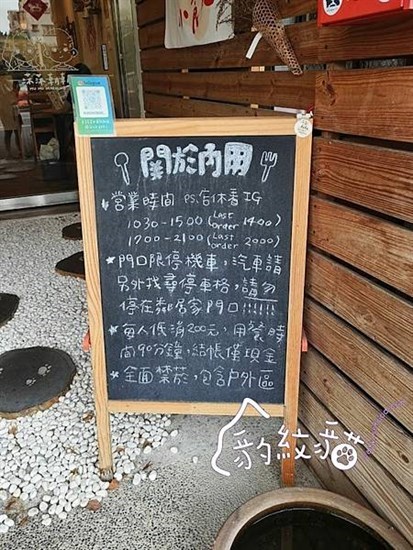 關於內用
★營業時間 ps.店休看IG
1030-1500 (Last order 1400)
1700-2100 (Last order 2000)
★門口限停機車，汽車請
另外找尋停車格，請勿
停在鄰居家門口!!!!!!
★每人低消200元，用餐時
間90分鐘，結帳僅現金
★全面禁菸，包含戶外區
豹紋貓